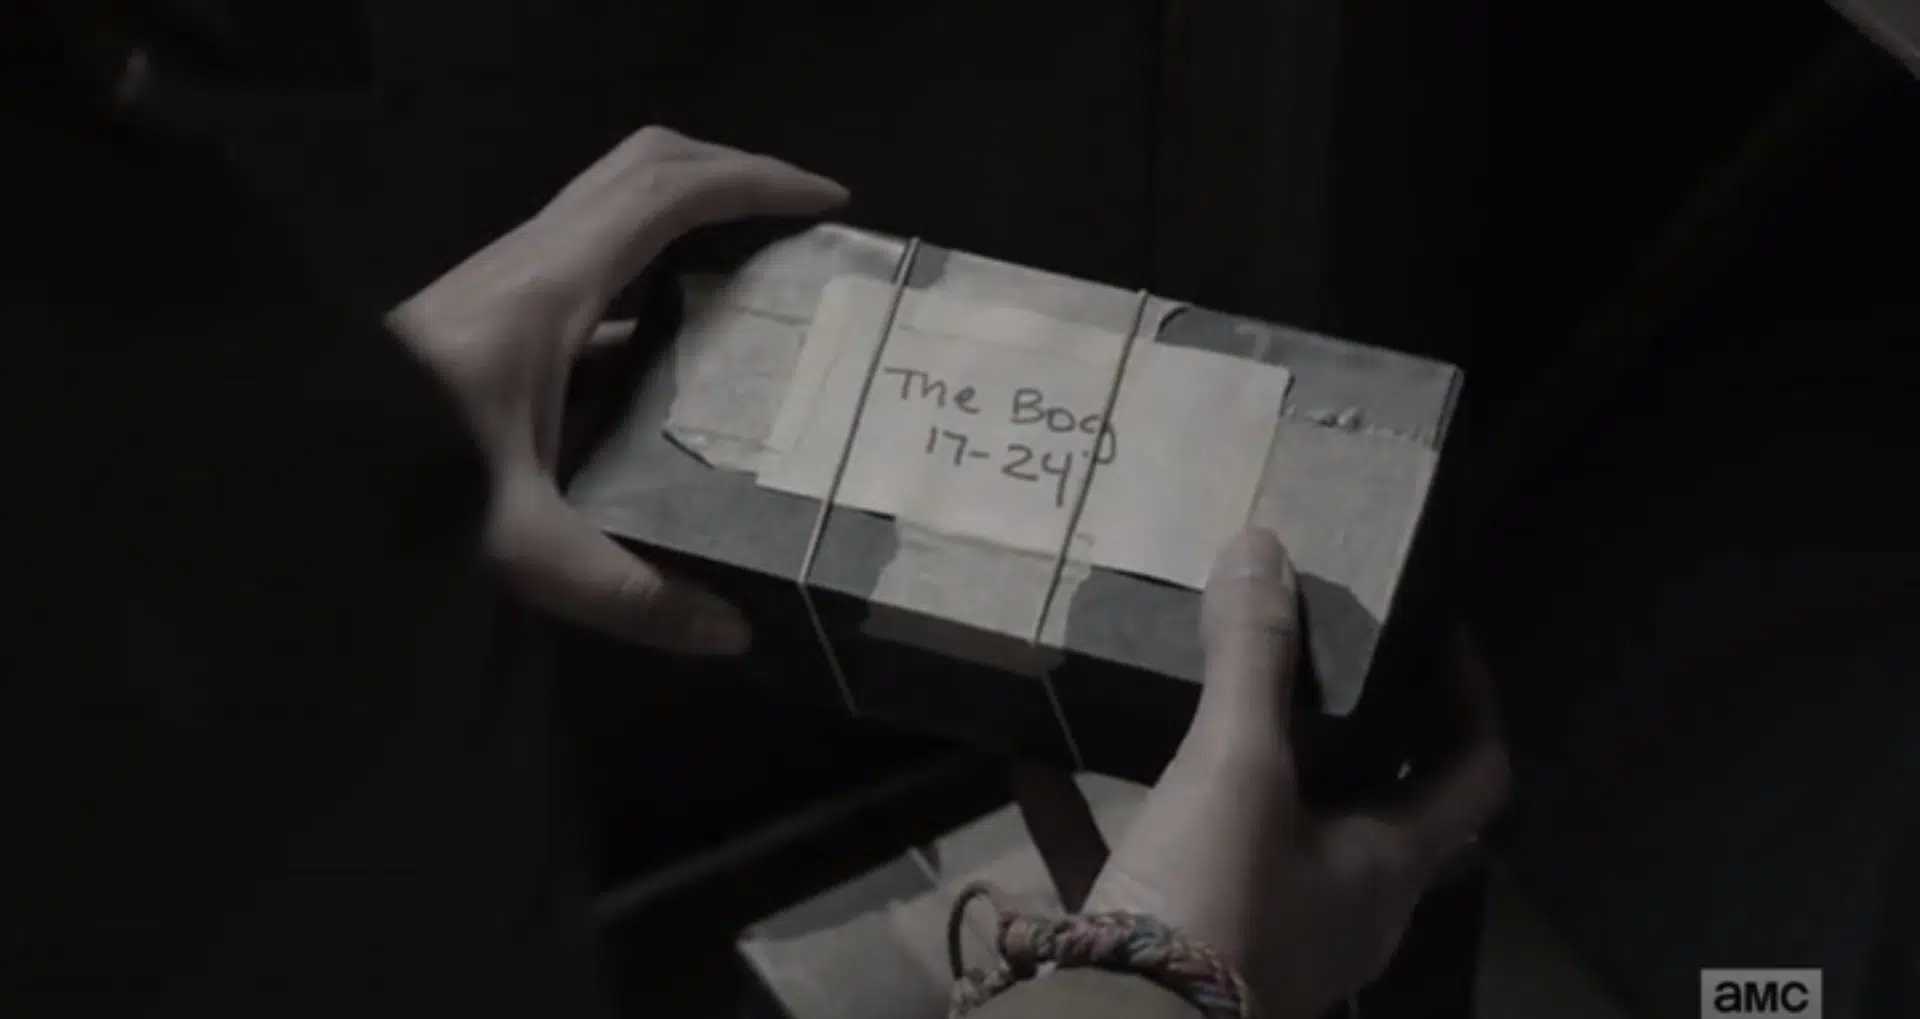 The Bog
17-24
aMC